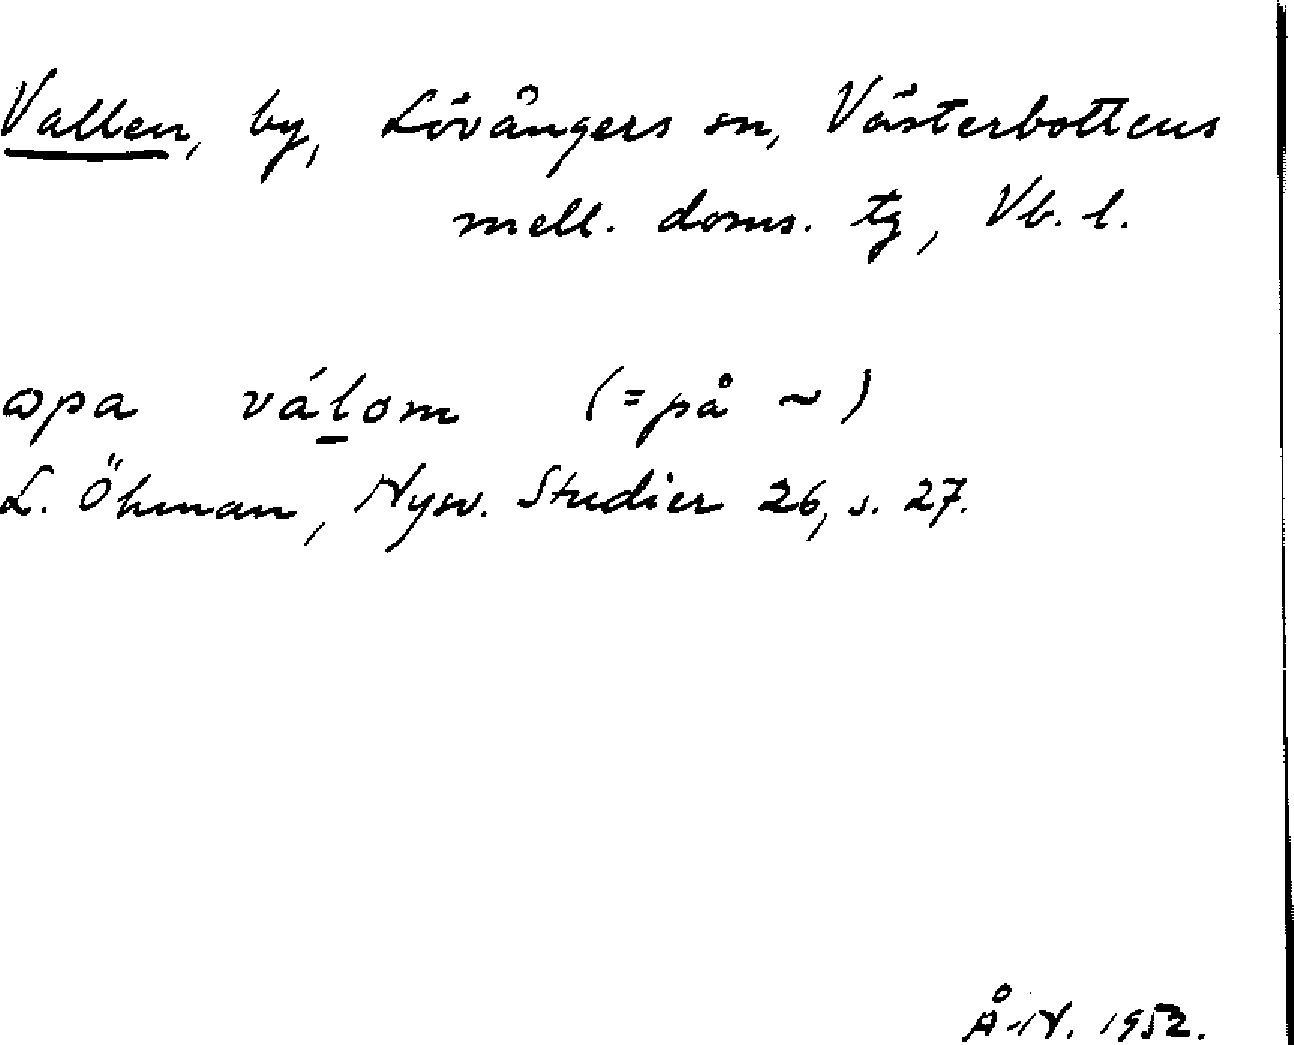 Vallen, by, Lövångers sn, Västerbottens
mell. doms. tg, Vb. l.
opa vál̲om (= på ~)
L. Öhman, Nysv. Studier 26, s. 27.
Å-N. 1952.